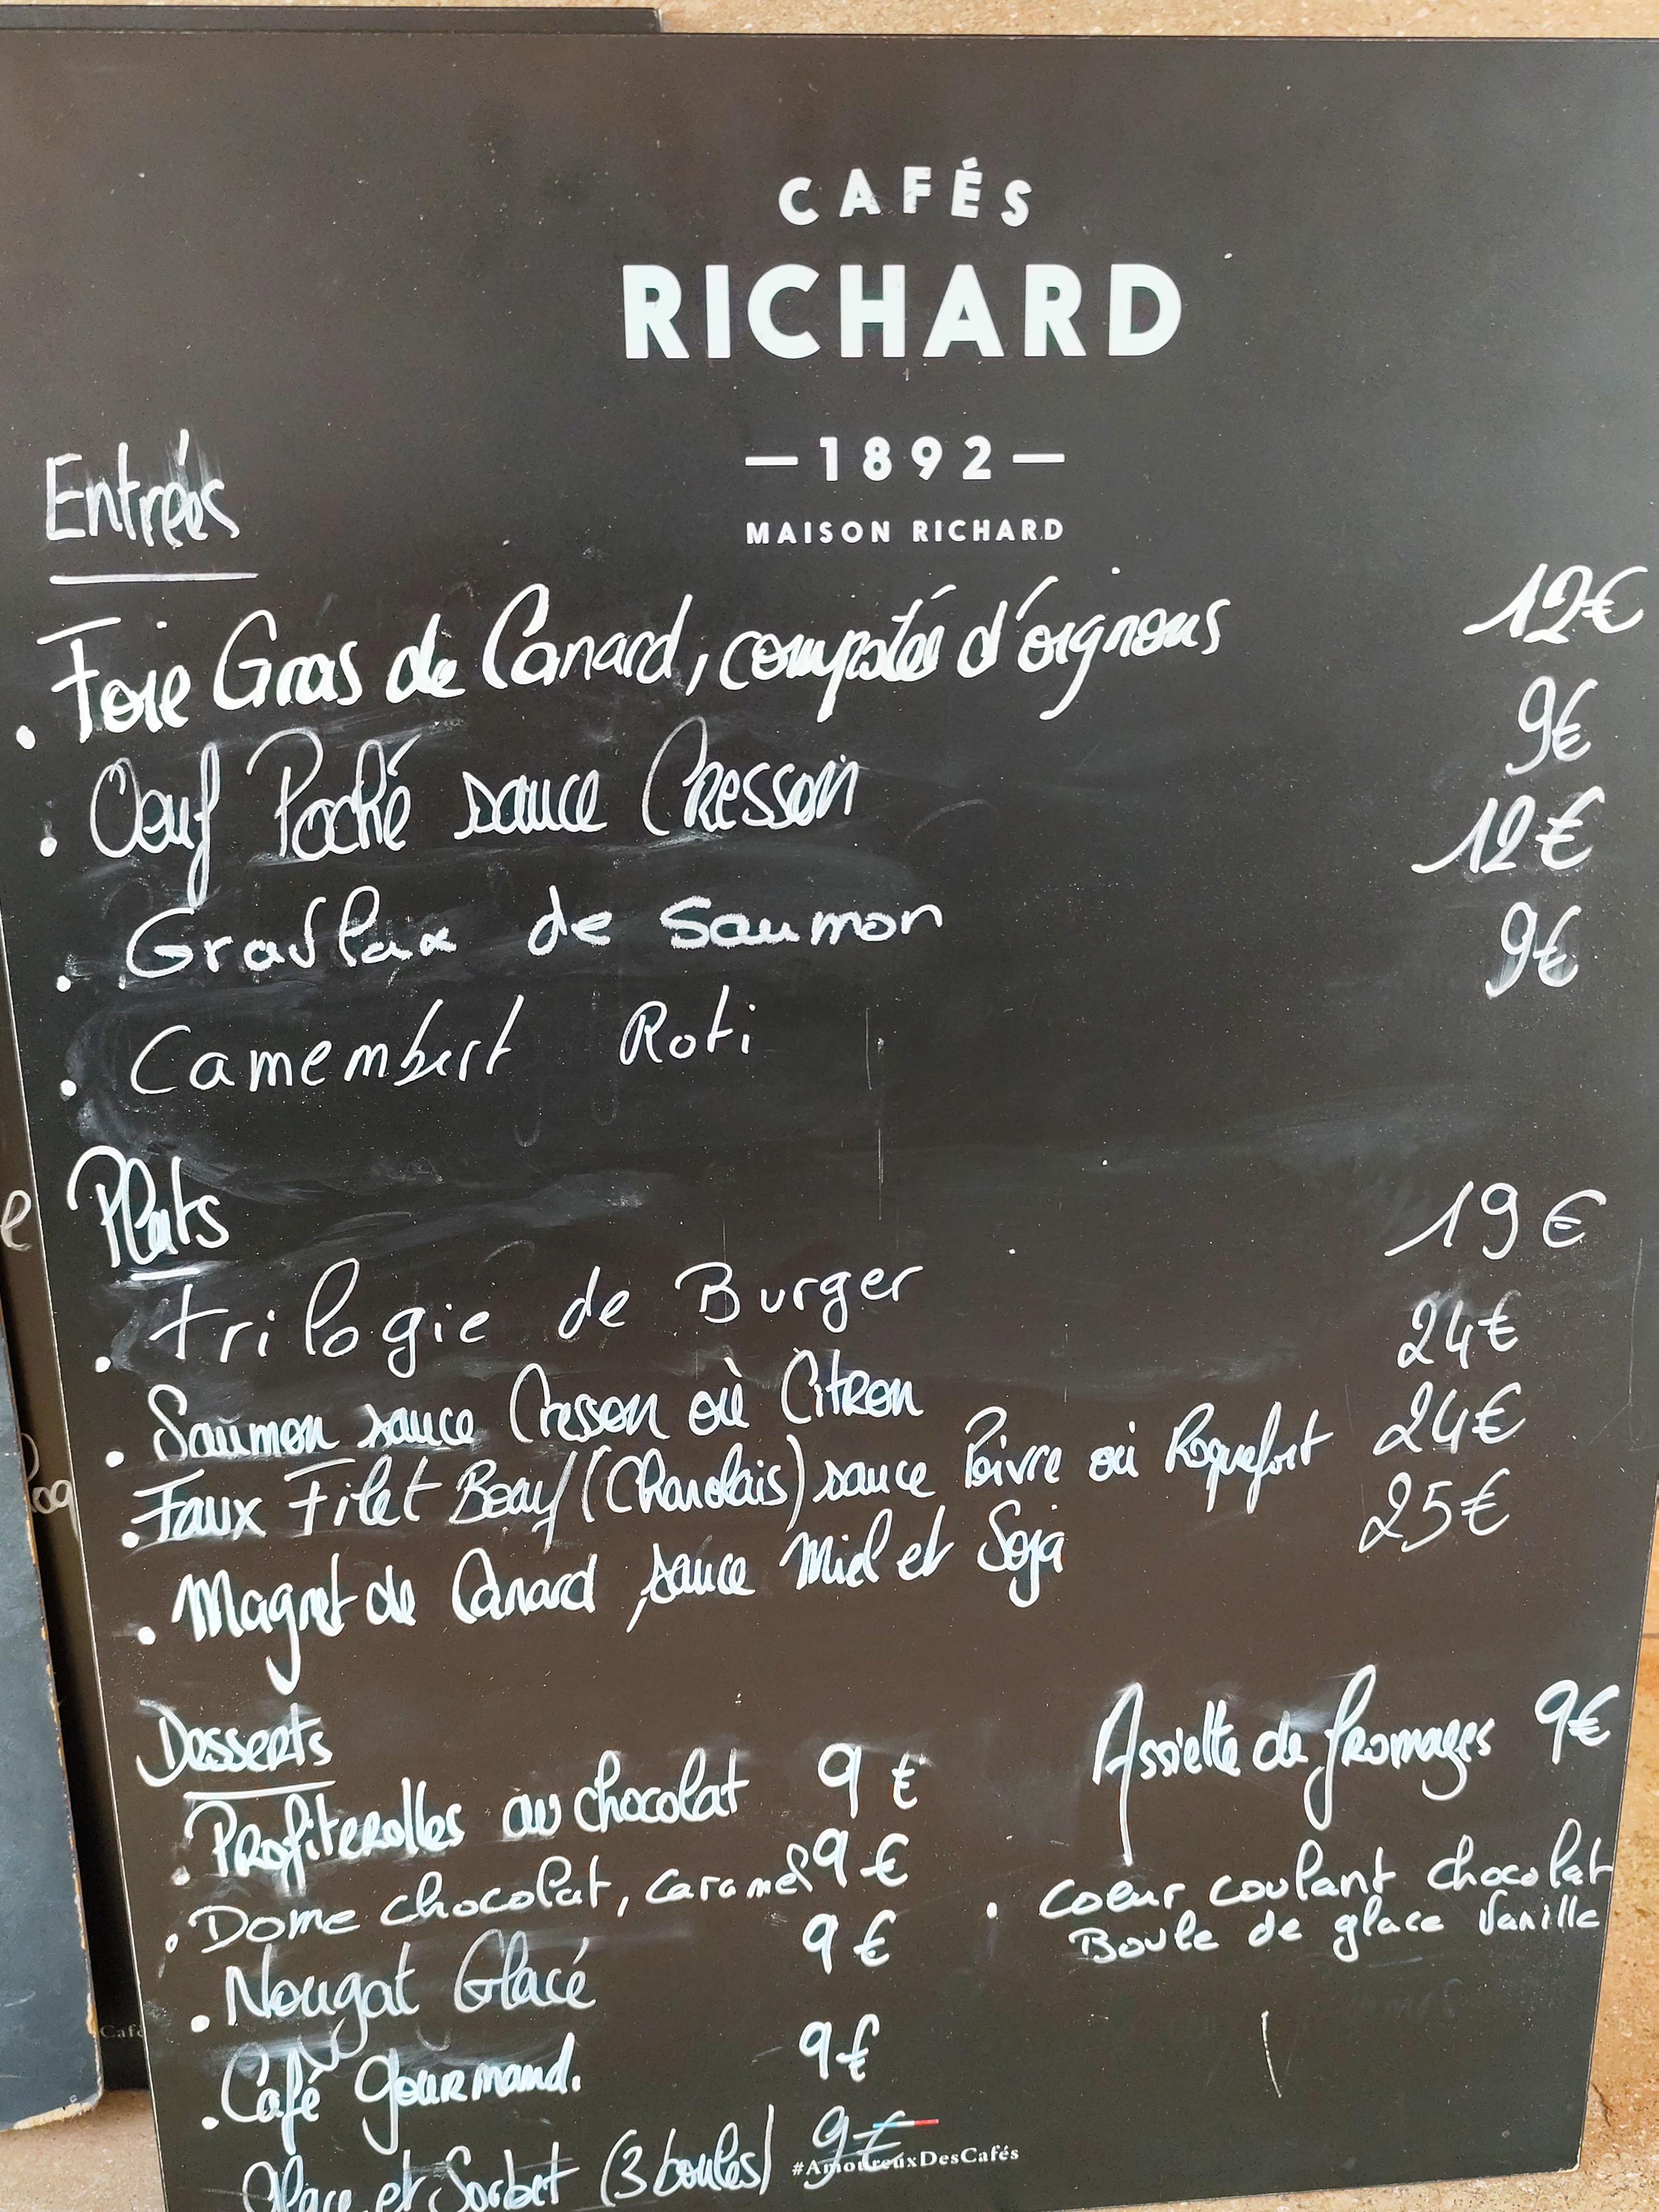 CAFÉS
RICHARD
— 1892 —
MAISON RICHARD
Entrées
. Foie Gras de Canard, compotée d'oignons 12€
. Oeuf Poché sauce Cresson 9€
. Gravlax de Saumon 12€
. Camembert Roti 9€
Plats
. Trilogie de Burger 19€
. Saumon sauce Cresson où Citron 24€
. Faux Filet Boeuf (Charolais) sauce Poivre où Roquefort 24€
. Magret de Canard, sauce Miel et Soja 25€
Desserts
. Profiterolles au chocolat 9€
. Dome chocolat, caramel 9€
. Nougat Glacé 9€
. Café gourmand. 9€
Glace et Sorbet (3 boules) 9€
Assiette de fromages 9€
. Coeur coulant chocolat
Boule de glace Vanille
#AmoureuxDesCafés
e
Café